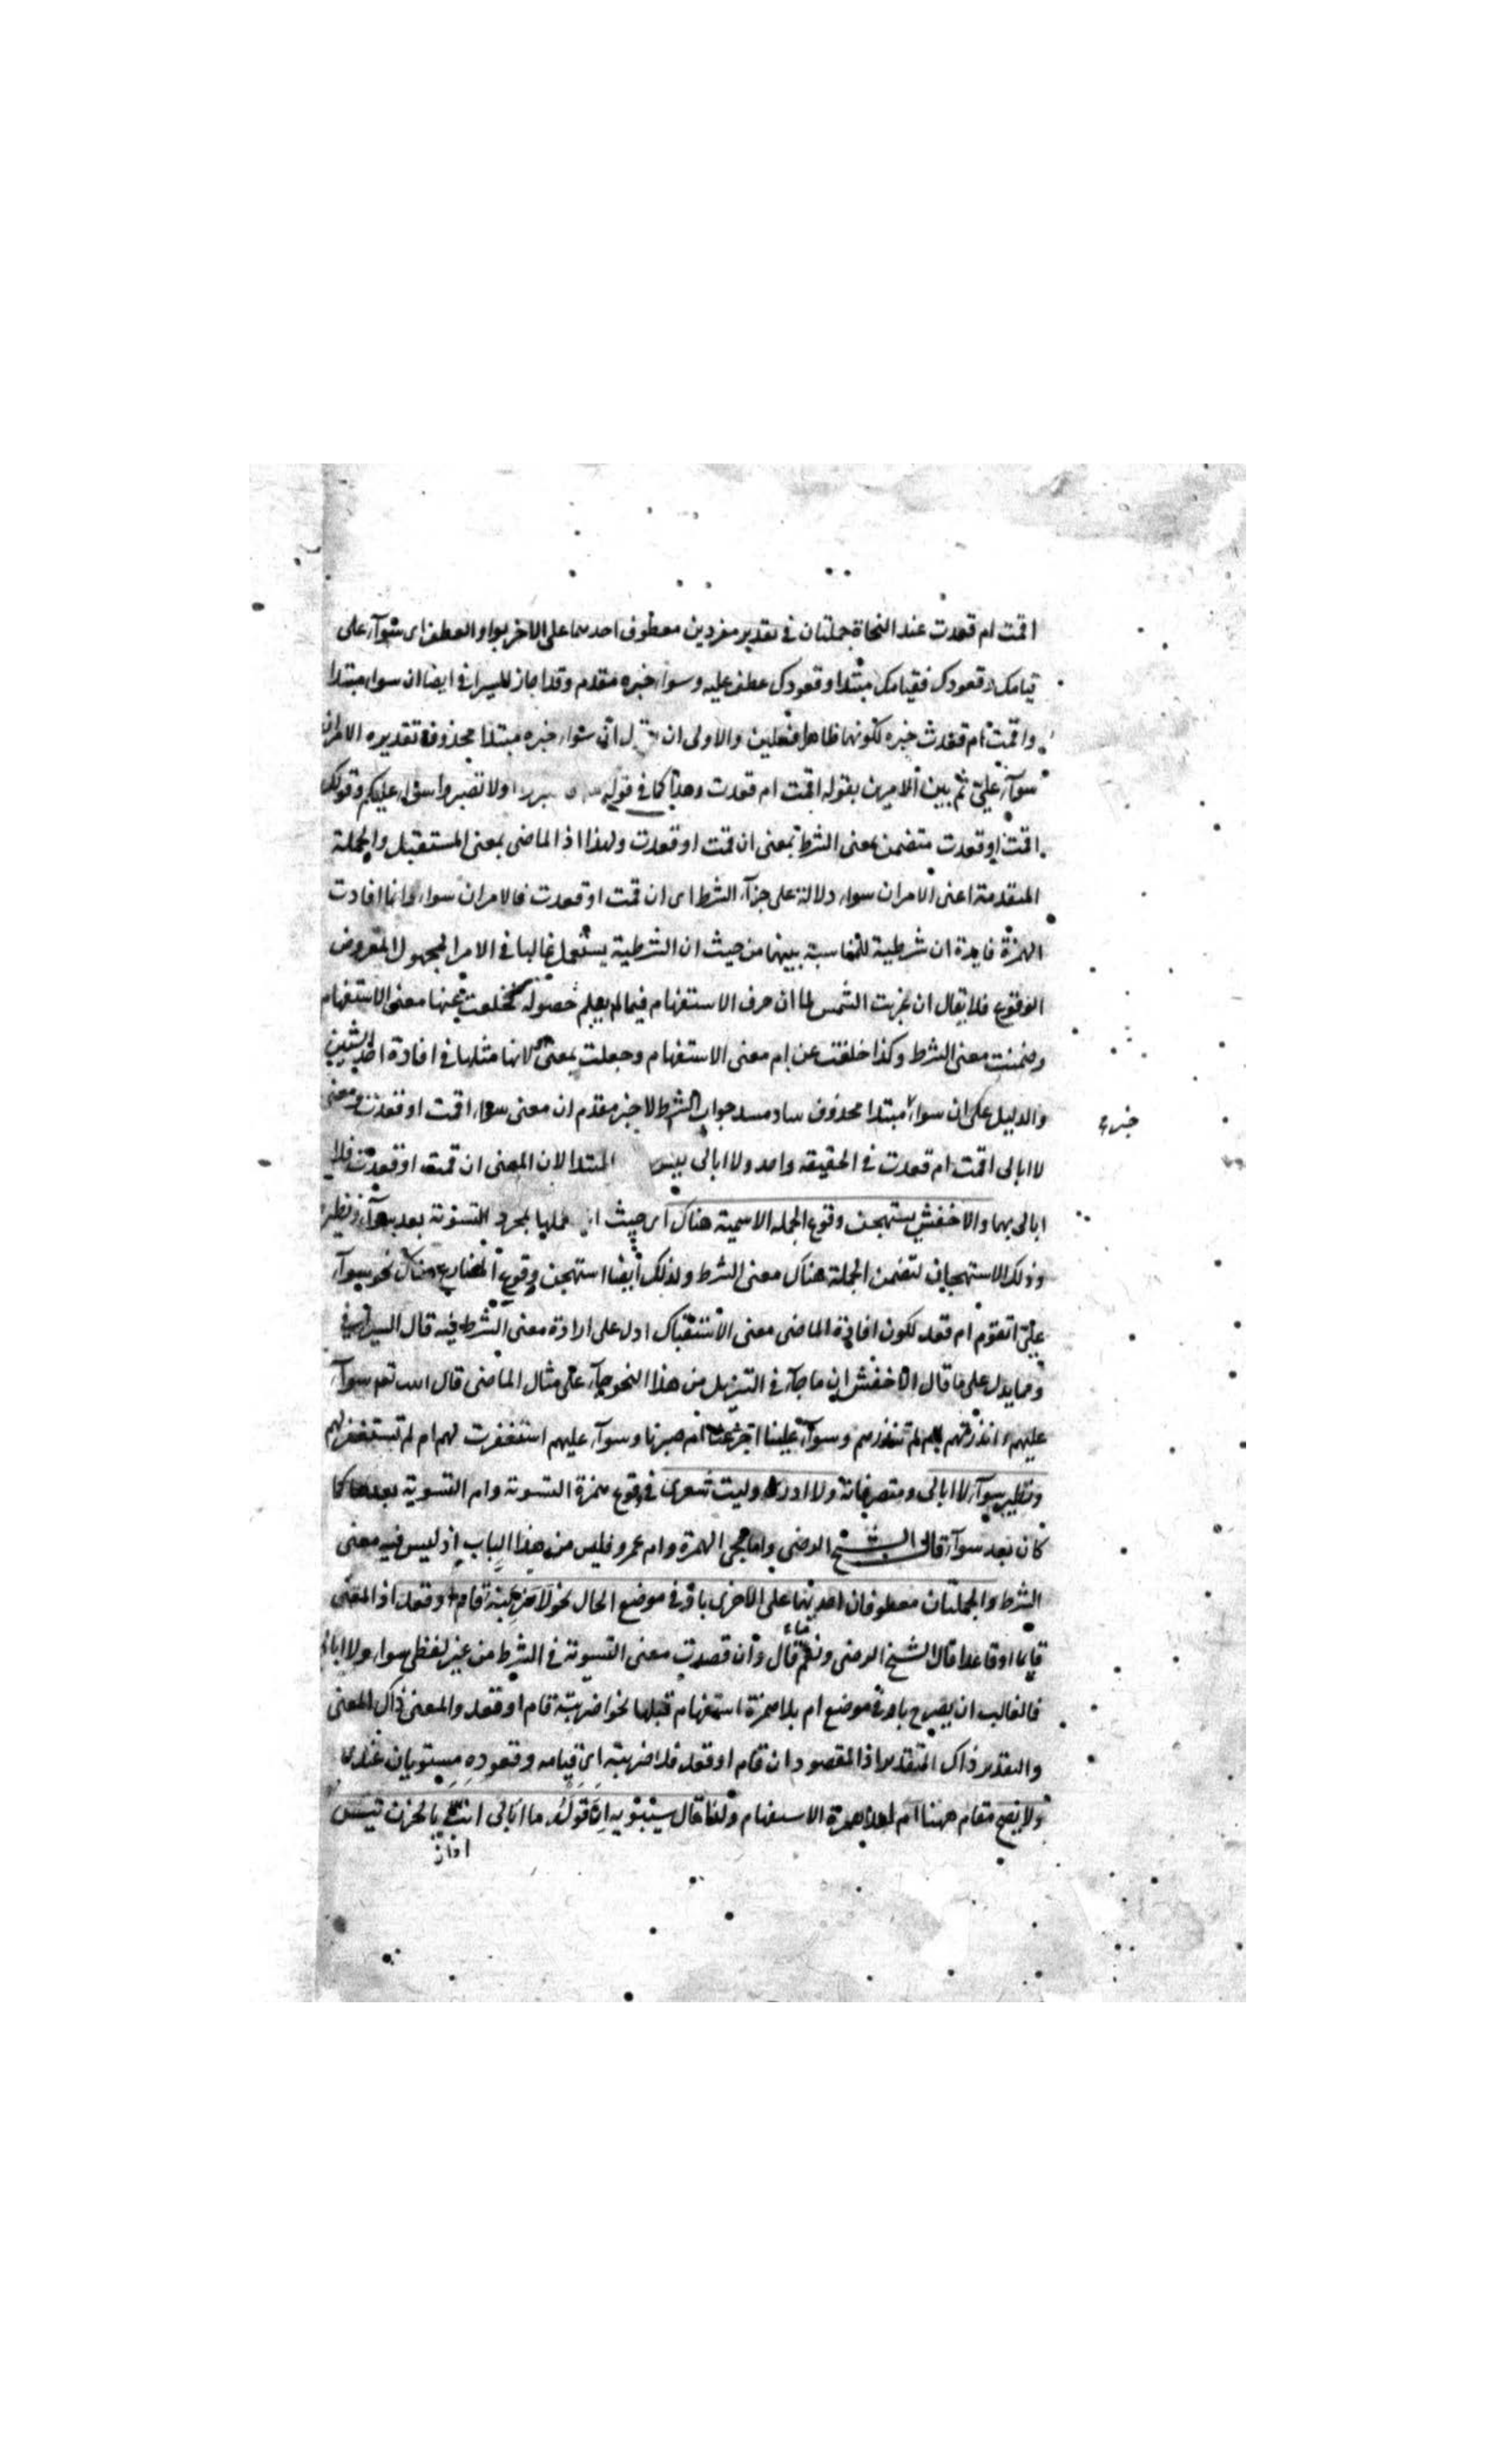 اقمت ام قعدت عند النحاة جملتان فى تقدير مفردين معطوف احدهما على الاخر بواو العطف اى سوآء على
قيامك وقعودك فقيامك مبتدا وقعودك عطف عليه وسواء خبره مقدم وقد اجاز السيرافى ايضا ان سواء مبتدا
واقمت ام قعدت خبره لكونهما ظاهرا فعلين والاولى ان ان سواء خبره مبتدا محذوف تقديره الامران
سوآء علىّ ثم بين الامرين بقوله اقمت ام قعدت وهذا كما فى قوله اولا تصبروا سوآء عليكم وقولك
اقمت او قعدت متضمن معنى الشرط بمعنى ان قمت او قعدت ولهذا اذ الماضى بمعنى المستقبل والجملة
المتقدمة اعنى الامران سواء دلالة على جزآء الشرط اى ان قمت او قعدت فالامران سواء وانما افادت
الهمزة فايدة ان شرطية للمناسبة بينهما من حيث ان الشرطية يستعمل غالبا فى الامر المجهول المفروض
الوقوع فلا يقال ان غربت الشمس كما ان حرف الاستفهام فيما لم يعلم حصوله فخلعت عنها معنى الاستفهام
وضمنت معنى الشرط وكذا خلعت عن ام معنى الاستفهام وجعلت بمعنى لانها مثلها فى افادة احد الشيئين
والدليل على ان سواء مبتدا محذوف ساد مسد جواب الشرط لا خبر مقدم ان معنى سواء اقمت او قعدت ومعنى
خبره
لا ابالى اقمت ام قعدت فى الحقيقه واحد ولا ابالى ليس المبتدا لان المعنى ان قمت او قعدت فلا
ابالى بهما والاخفش يستهجن وقوع الجمله الاسمية هناك اى حيث لمجرد التسوية بعد سوآء ونظيره
وذلك الاستهجان لتضمن الجملة هناك معنى الشرط ولذلك ايضا استهجن وقوع المضارع هناك نحو سوآء
علىّ اتقوم ام تقعد لكون افادة الماضى معنى الاستقبال ادل على ارادة معنى الشرط فيه قال السيرافى
ومما يدل على ما قال الاخفش ان ما جآء فى التنزيل من هذا النحو جآء على مثال الماضى قال الله تعم سوآء
عليهم ءانذرتهم ام لم تنذرهم وسوآء علينا اجزعنا ام صبرنا وسوآء عليهم استغفرت لهم ام لم تستغفر لهم
ونظير سوآء لا ابالى ومتصرفاته ولا ادرى وليت شعرى فى وقوع همزة التسوية وام التسوية بعدها كما
كان بعد سوآء قال الشيخ الرضى واما مجى الهمزة وام عمرو فليس من هذا الباب اذ ليس فيه معنى
الشرط والجملتان معطوفان احديهما على الاخرى باو فى موضع الحال نحو لاضربنه قام او قعد اذ المعنى
قايما او قاعدا قال الشيخ الرضى ونعم ما قال وان قصدت معنى التسوية فى الشرط من غير لفظى سواء ولا ابالى
فالغالب ان يصرح باو فى موضع ام بلا همزة استفهام قبلها نحو اضربنه قام او قعد والمعنى ذاك المعنى
والتقدير ذاك التقدير اذ المقصود ان قام او قعد فلاضربنه اى قيامه وقعوده مستويان عندى
ولا يصح مقام ههنا ام لعدم همزة الاستفهام ولهذا قال سيبويه ان قولك ما ابالى انبّ بالحزن تيس